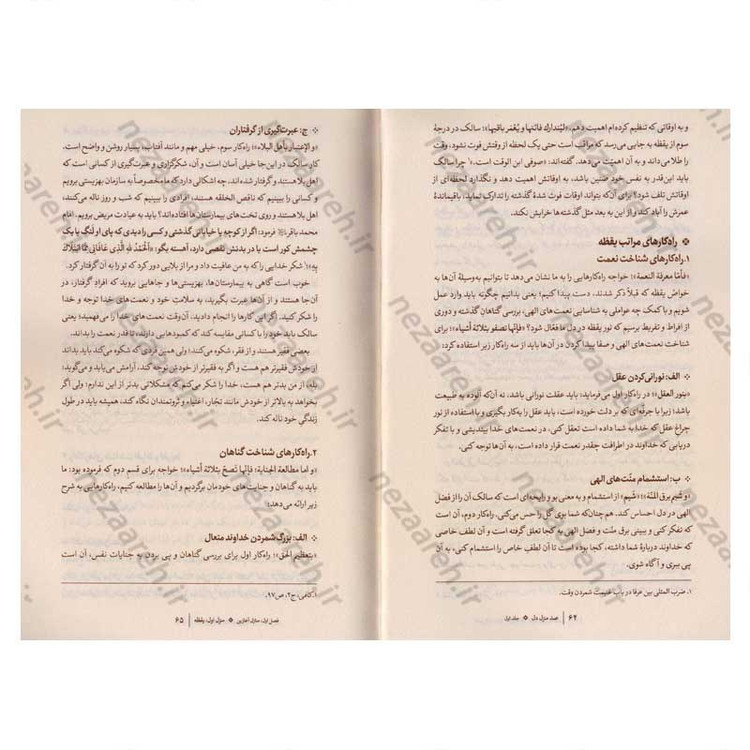 و به اوقاتی که تنظیم کرده‌ام اهمیت دهم. «لیتدارك فائتها و یعمر باقیها»؛ سالک در درجهٔ
سوم از یقظه به جایی می‌رسد که مراقب است حتی یک لحظه از وقتش فوت نشود، وقت
را طلا می‌داند و به آن اهمیت می‌دهد. گفته‌اند: «صوفی ابن الوقت است.»۱ چرا سالک
باید این‌قدر به نفس خود ضنین باشد، به اوقاتش اهمیت دهد و نگذارد لحظه‌ای از
اوقاتش تلف شود؟ برای آنکه بتواند اوقات فوت شدهٔ گذشته را تدارک نماید، باقیماندهٔ
عمرش را آباد کند و از این به بعد مثل گذشته‌ها خرابش نکند.
راه‌کارهای مراتب یقظه
۱. راه‌کارهای شناخت نعمت
«فأمّا معرفة النعمة»؛ خواجه راه‌کارهایی را به ما نشان می‌دهد تا بتوانیم به‌وسیلهٔ آن‌ها به
خواص یقظه که قبلاً ذکر شدند، دست پیدا کنیم؛ یعنی بدانیم چگونه باید وارد عمل
شویم و با کمک چه عواملی به شناسایی نعمت‌های الهی، بررسی گناهان گذشته و دوری
از افراط و تفریط برسیم که نور یقظه در دل ما فعّال شود؟ «فإنّها تصفو بثلاثة أشیاء»؛ برای
شناخت نعمت‌های الهی و صفا پیدا کردن در آن‌ها باید از سه راه‌کار زیر استفاده کرد:
الف: نورانی کردن عقل
«بنور العقل»؛ در راه‌کار اول می‌فرماید، باید عقلت نورانی باشد، نه آن‌که آلوده به طبیعت
باشد؛ زیرا با جرقه‌ای که بر دلت خورده است، باید عقل را به‌کار بگیری و با استفاده از نور
چراغ عقل که خدا به شما داده است تعقل کنی، در نعمت‌های خدا بیندیشی و با تفکر
دریابی که خداوند در اطرافت چقدر نعمت قرار داده است، به آن‌ها توجه کنی.
ب: استشمام منّت‌های الهی
«و شیم برق المنّة»؛ «شیم» از استشمام و به معنی بو و رایحه‌ای است که سالک آن را از فضل
الهی در دل احساس کند. هم‌چنان‌که شما بوی گل را حس می‌کنی. راه‌کار دوم، آن است
که تفکر کنی و ببینی برق منت و فضل الهی به کجا تعلق گرفته است و آن لطف خاصی
که خداوند دربارهٔ شما داشته، کجا بوده است تا آن لطفِ خاص را استشمام کنی، به آن
پی ببری و آگاه شوی.
۱. ضرب المثلی بین عرفا در باب غنیمت شمردن وقت.
۶۴ | صد منزل دل ❖ جلد اول
ج: عبرت‌گیری از گرفتاران
«و الإعتبار بأهل البلاء»؛ راه‌کار سوم، خیلی مهم و مانند آفتاب، بسیار روشن و واضح است.
کار سالک در این‌جا خیلی آسان است و آن، شکرگزاری و عبرت‌گیری از کسانی است که
اهل بلا هستند و گرفتار شده‌اند. چه اشکالی دارد که ما مخصوصاً به سازمان بهزیستی برویم
و کسانی را ببینیم که ناقص الخلقه هستند، افرادی را ببینیم که شب و روز ناله می‌کنند،
اهل بلا هستند و روی تخت‌های بیمارستان‌ها افتاده‌اند؟ باید به عیادت مریض برویم. امام
محمد باقر فرمود: اگر از کوچه یا خیابانی گذشتی و کسی را دیدی که پای او لنگ یا یک
چشمش کور است یا در بدنش نقصی دارد، آهسته بگو: «الْحَمْدُ لِلَّهِ الَّذِي عَافَانِي مِمَّا ابْتَلَاكَ
بِهِ»۱ شکر خدایی را که به من عافیت داد و مرا از بلایی دور کرد که تو را به آن گرفتار کرد.
خوب است گاهی به بیمارستان‌ها، بهزیستی‌ها و جاهایی بروید که افرادِ گرفتار، در
آن‌جا هستند و از آن‌ها عبرت بگیرید، به سلامتیِ خود و نعمت‌های خدا توجه و خدا
را شکر کنید. اگر این کارها را انجام دادید، آن‌وقت نعمت‌های خدا را می‌فهمید؛ یعنی
سالک باید خود را با کسانی مقایسه کند که کمبودهایی دارند، تا قدر نعمت را بداند.
بعضی فقیر هستند و از فقر، شکوه می‌کنند؛ ولی همین فردی که شکوه می‌کند باید بداند
از خودش فقیرتر هم هست و اگر به فقیرتر از خودش توجه کند، آرامش می‌یابد و می‌گوید:
بله! از من بدتر هم هست، خدا را شکر می‌کنم که مشکلاتی بدتر از این ندارم؛ ولی اگر
بخواهد به بالاتر از خودش مانند تجّار، اغنیاء و ثروتمندان نگاه کند، همیشه باید در طول
زندگیِ خود ناله کند.
۲. راه‌کارهای شناخت گناهان
«و اما مطالعة الجنایة؛ فإنّها تصحّ بثلاثة أشیاء»؛ خواجه برای قسم دوم که فرموده بود: ما
باید به گناهان و جنایت‌های خودمان برگردیم و آن‌ها را مطالعه کنیم، راه‌کارهایی به شرح
زیر ارائه می‌دهد:
الف: بزرگ شمردن خداوند متعال
«بتعظیم الحق»؛ راه‌کار اول برای بررسی گناهان و پی بردن به جنایات نفس، آن است
۱. کافی، ج۲، ص۹۷.
فصل اول: منازل آغازین ❖ منزل اول: یقظه | ۶۵
nezaareh.ir